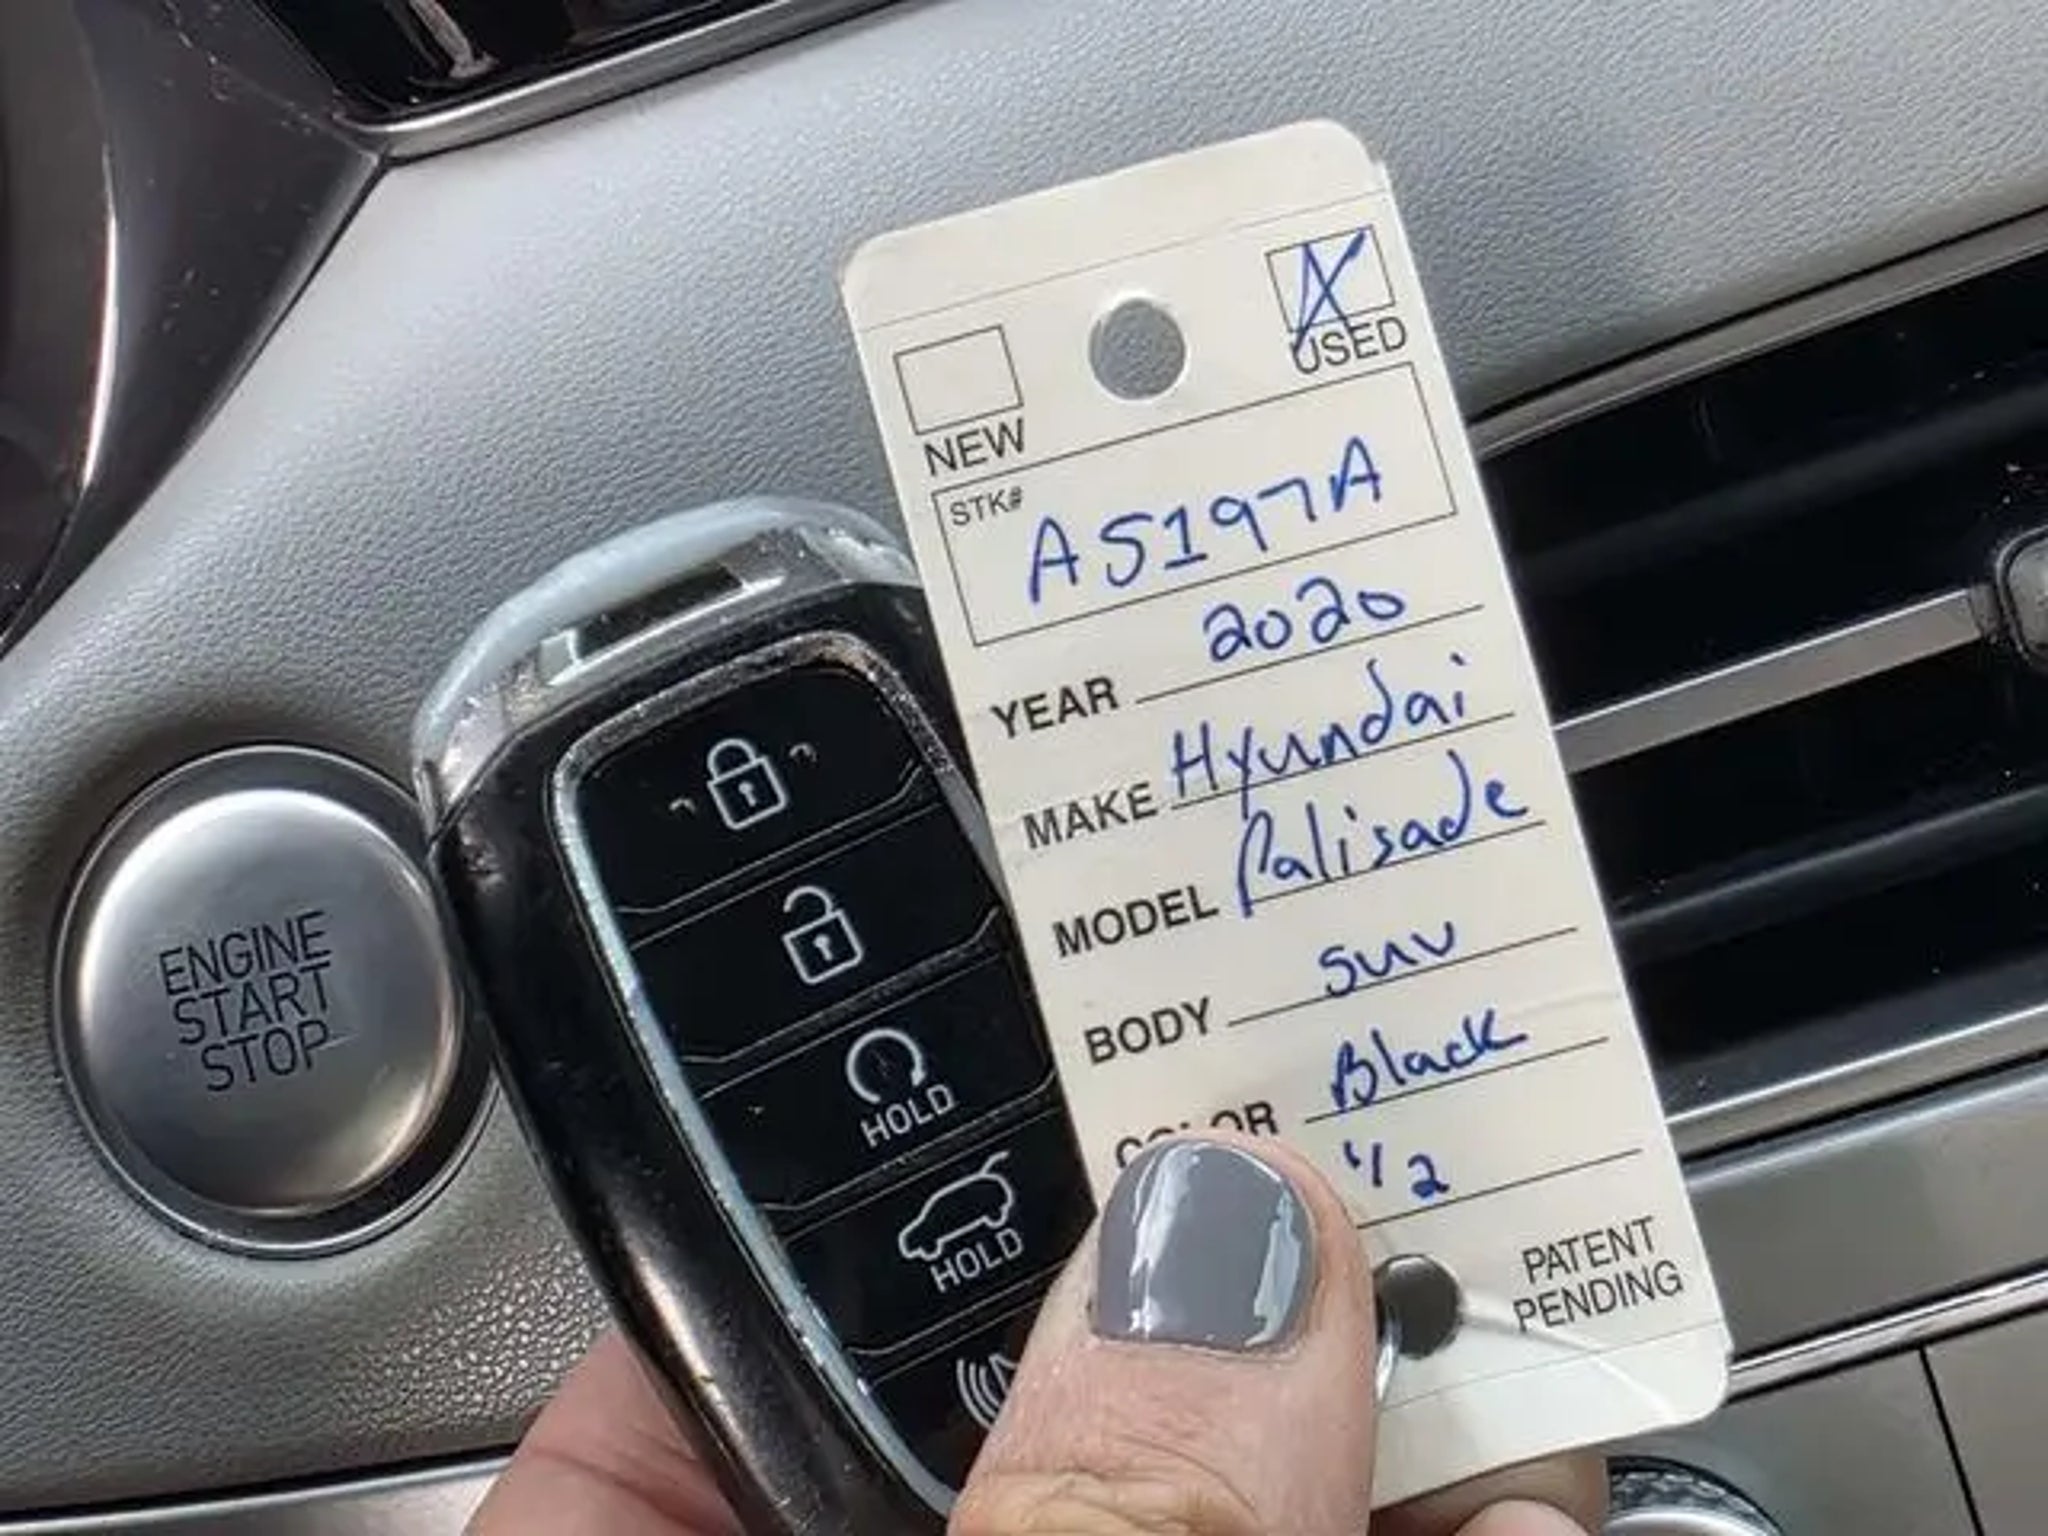 NEW
USED
STK# A5197A
YEAR 2020
MAKE Hyundai
MODEL Palisade
BODY SUV
COLOR Black
1/2
PATENT
PENDING
ENGINE
START
STOP
HOLD
HOLD